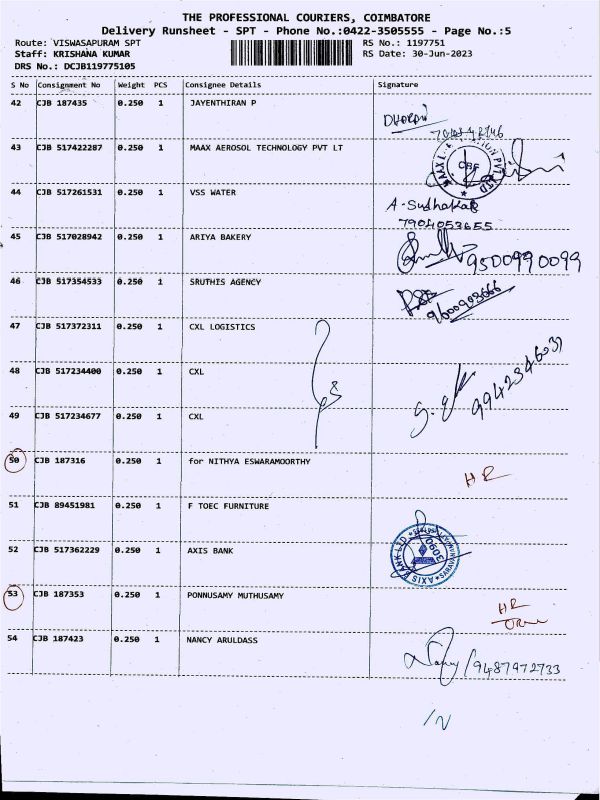 THE PROFESSIONAL COURIERS, COIMBATORE
Delivery Runsheet - SPT - Phone No.:0422-3505555 - Page No.:5
Route: VISWASAPURAM SPT RS No.: 1197751
Staff: KRISHANA KUMAR RS Date: 30-Jun-2023
DRS No.: DCJB119775105
S No Consignment No Weight PCS Consignee Details Signature
42 CJB 187435 0.250 1 JAYENTHIRAN P
43 CJB 517422287 0.250 1 MAAX AEROSOL TECHNOLOGY PVT LT
44 CJB 517261531 0.250 1 VSS WATER
A-Sudhakar
7904053655
45 CJB 517028942 0.250 1 ARIYA BAKERY
9500990099
46 CJB 517354533 0.250 1 SRUTHIS AGENCY
9600903666
47 CJB 517372311 0.250 1 CXL LOGISTICS
48 CJB 517234400 0.250 1 CXL
9942346031
49 CJB 517234677 0.250 1 CXL
50 CJB 187316 0.250 1 for NITHYA ESWARAMOORTHY
HR
51 CJB 89451981 0.250 1 F TOEC FURNITURE
52 CJB 517362229 0.250 1 AXIS BANK
AXIS BANK LTD
53 CJB 187353 0.250 1 PONNUSAMY MUTHUSAMY
HR
54 CJB 187423 0.250 1 NANCY ARULDASS
Nancy/9487972733